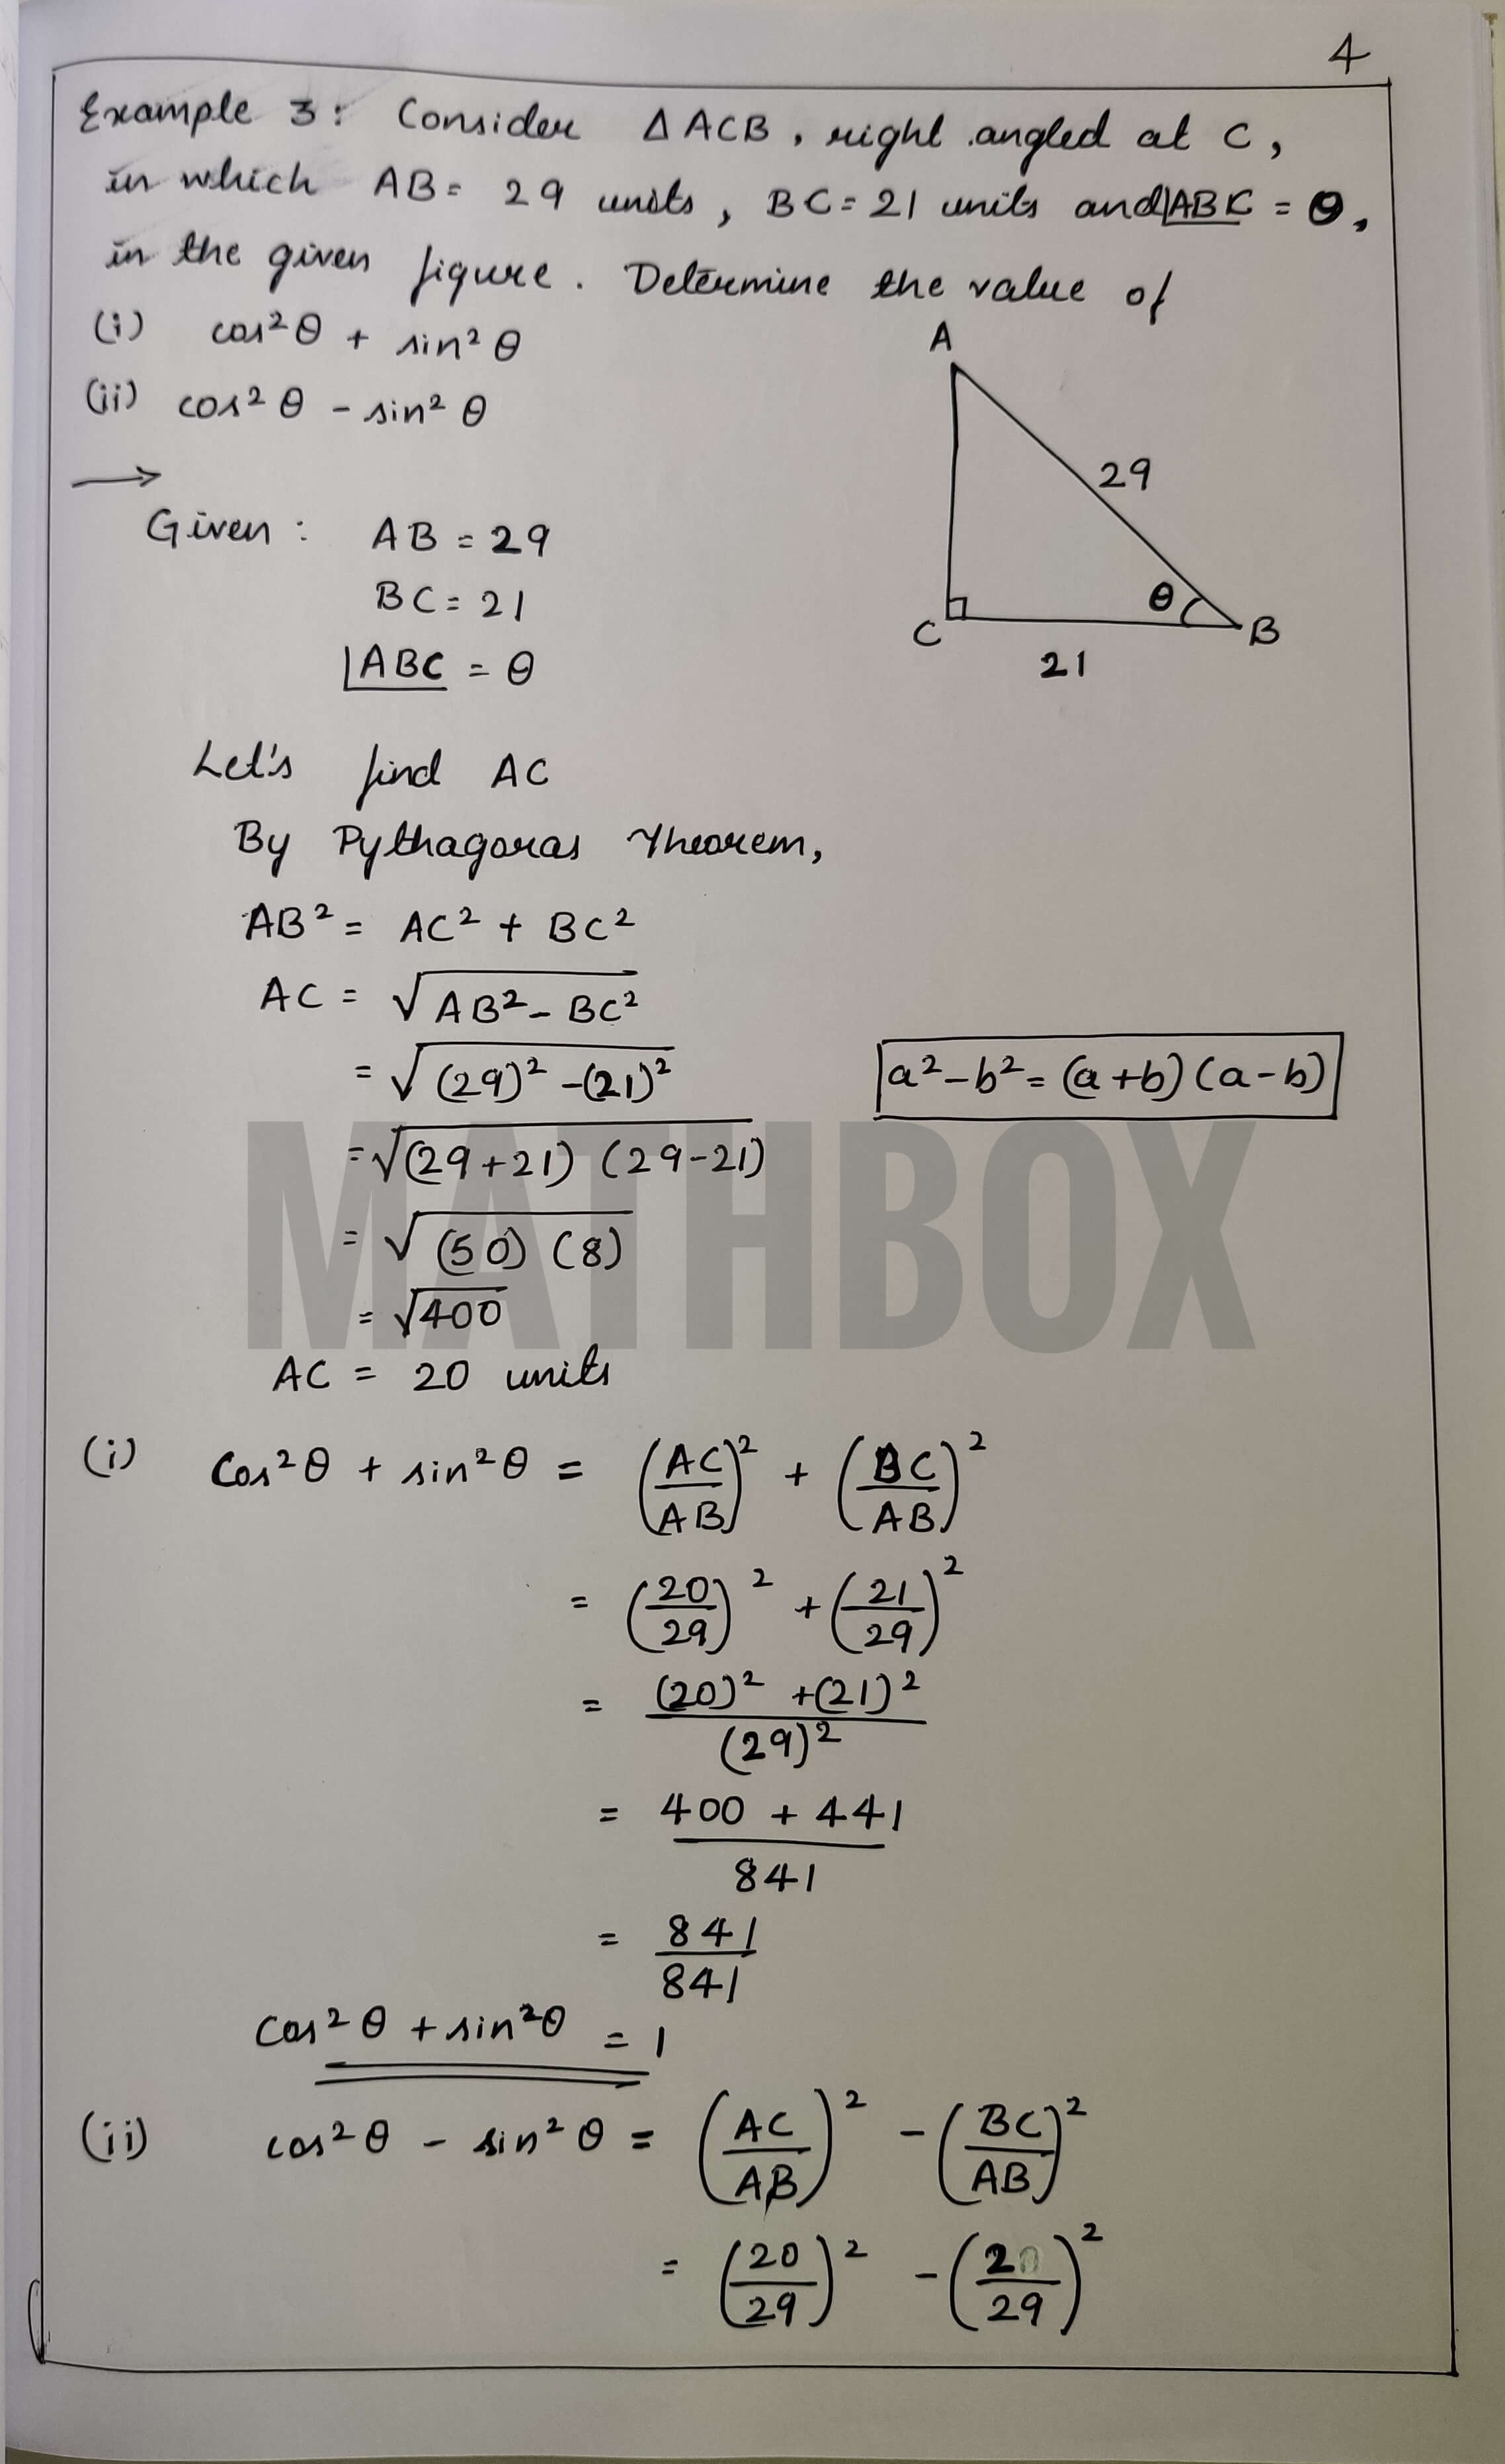 4
Example 3: Consider △ACB, right angled at C,
in which AB = 29 units, BC = 21 units and ∠ABC = θ,
in the given figure. Determine the value of
(i) cos²θ + sin²θ
(ii) cos²θ - sin²θ
A
29
θ
C
B
21
→
Given : AB = 29
BC = 21
∠ABC = θ
Let's find AC
By Pythagoras Theorem,
AB² = AC² + BC²
AC = √(AB² - BC²)
= √((29)² - (21)²)
a² - b² = (a+b)(a-b)
= √((29+21)(29-21))
= √((50)(8))
= √400
AC = 20 units
MATHBOX
(i) Cos²θ + sin²θ = (AC/AB)² + (BC/AB)²
= (20/29)² + (21/29)²
= ((20)² + (21)²)/(29)²
= (400 + 441)/841
= 841/841
Cos²θ + sin²θ = 1
(ii) cos²θ - sin²θ = (AC/AB)² - (BC/AB)²
= (20/29)² - (2 /29)²